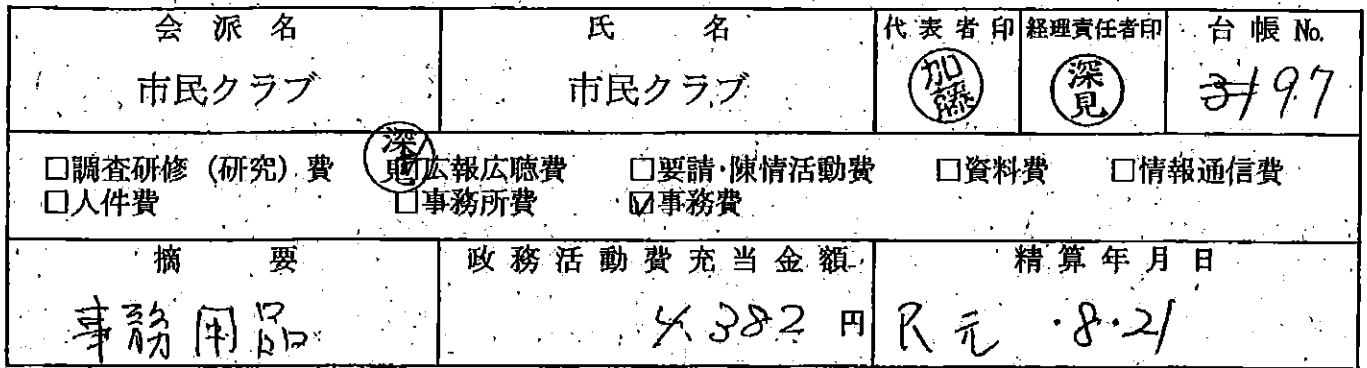 会派名 氏名 代表者印 経理責任者印 台帳No.
市民クラブ 市民クラブ 加藤 深見 97
□調査研修（研究）費 深見 ☑広報広聴費 □要請・陳情活動費 □資料費 □情報通信費
□人件費 □事務所費 ☑事務費
摘要 政務活動費充当金額 精算年月日
事務用品 4,382円 R元・8・21